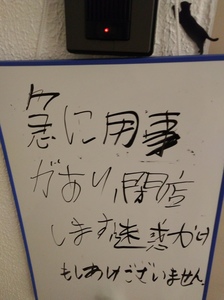 急に用事
があり、閉店
します迷惑かけ
もしあけございません